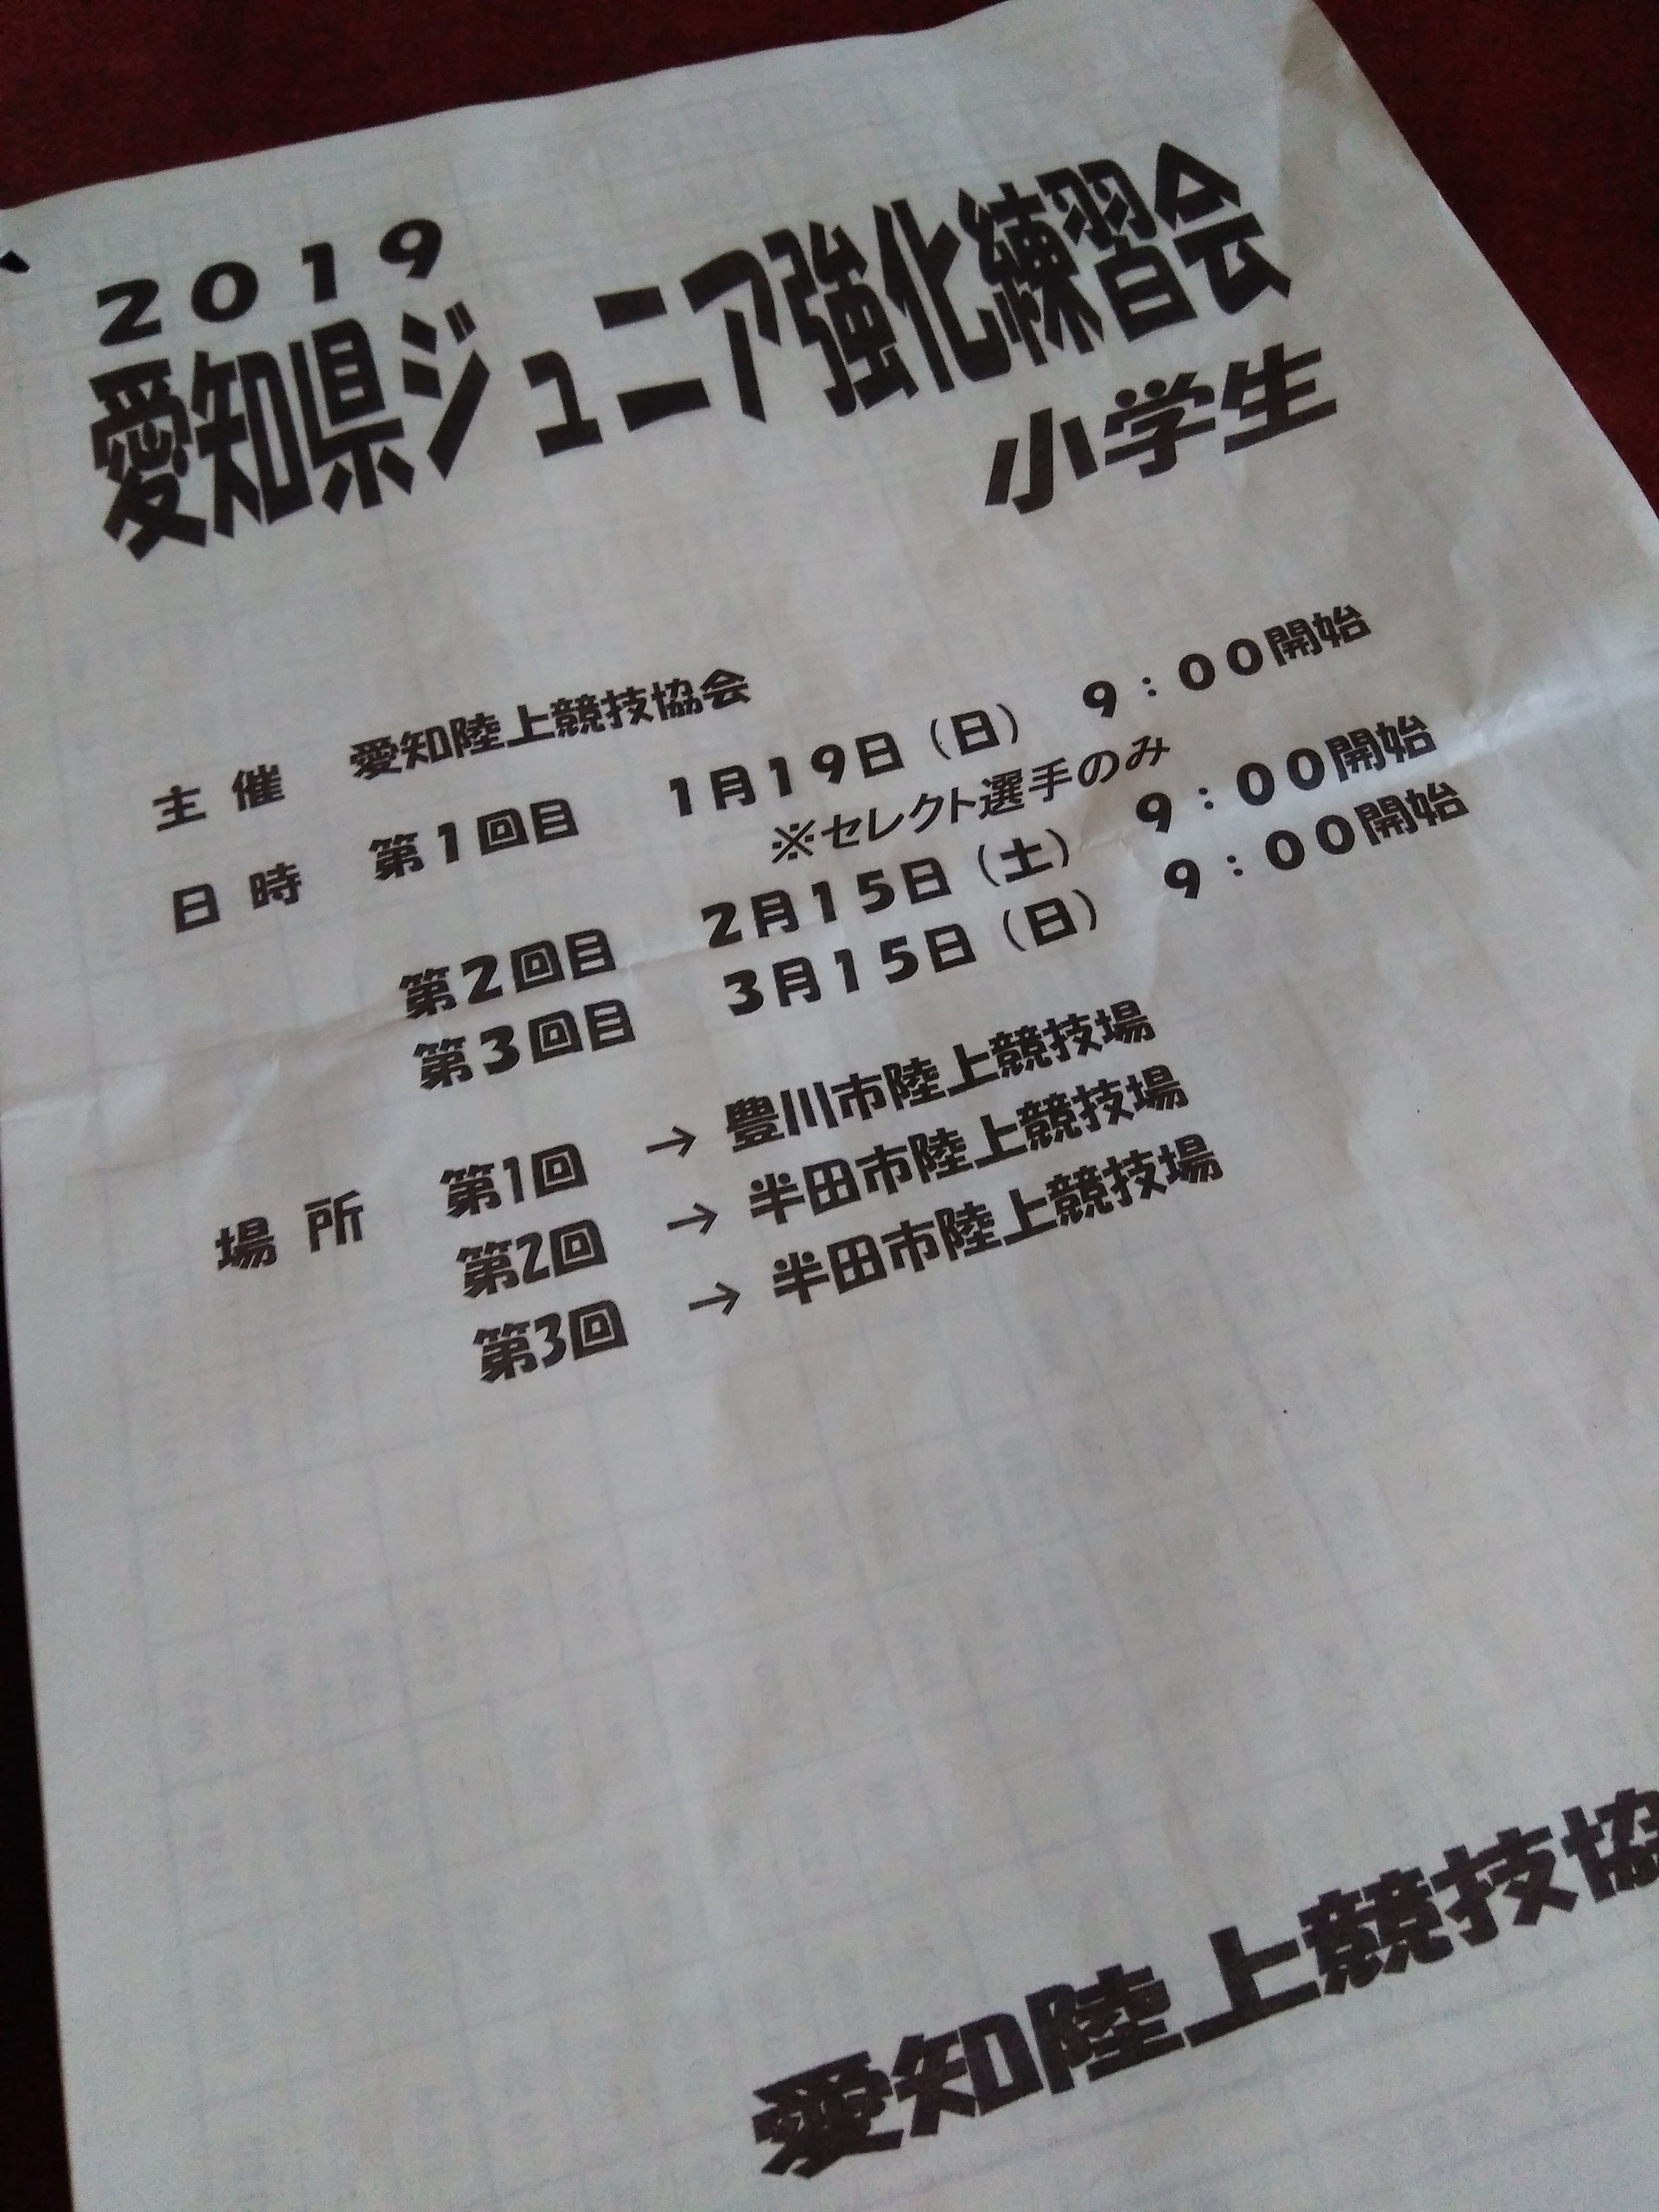 2019
愛知県ジュニア強化練習会
小学生
主 催　愛知陸上競技協会
日 時　第1回目　1月19日（日）　9：00開始
※セレクト選手のみ
第2回目　2月15日（土）　9：00開始
第3回目　3月15日（日）　9：00開始
場 所　第1回　→ 豊川市陸上競技場
第2回　→ 半田市陸上競技場
第3回　→ 半田市陸上競技場
愛知陸上競技協